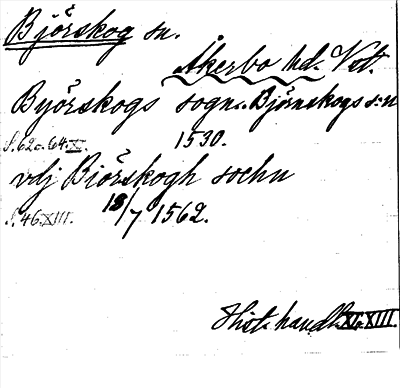 Björskog sn.
Åkerbo hd. Vstm.
Byörskogs sogn. Björnskogs s:n
S. 62 o. 64. XI. 1530.
vdj Biörskogh sochn
S. 46. XIII. 18/7 1562.
Hist. handl. XI. XIII.